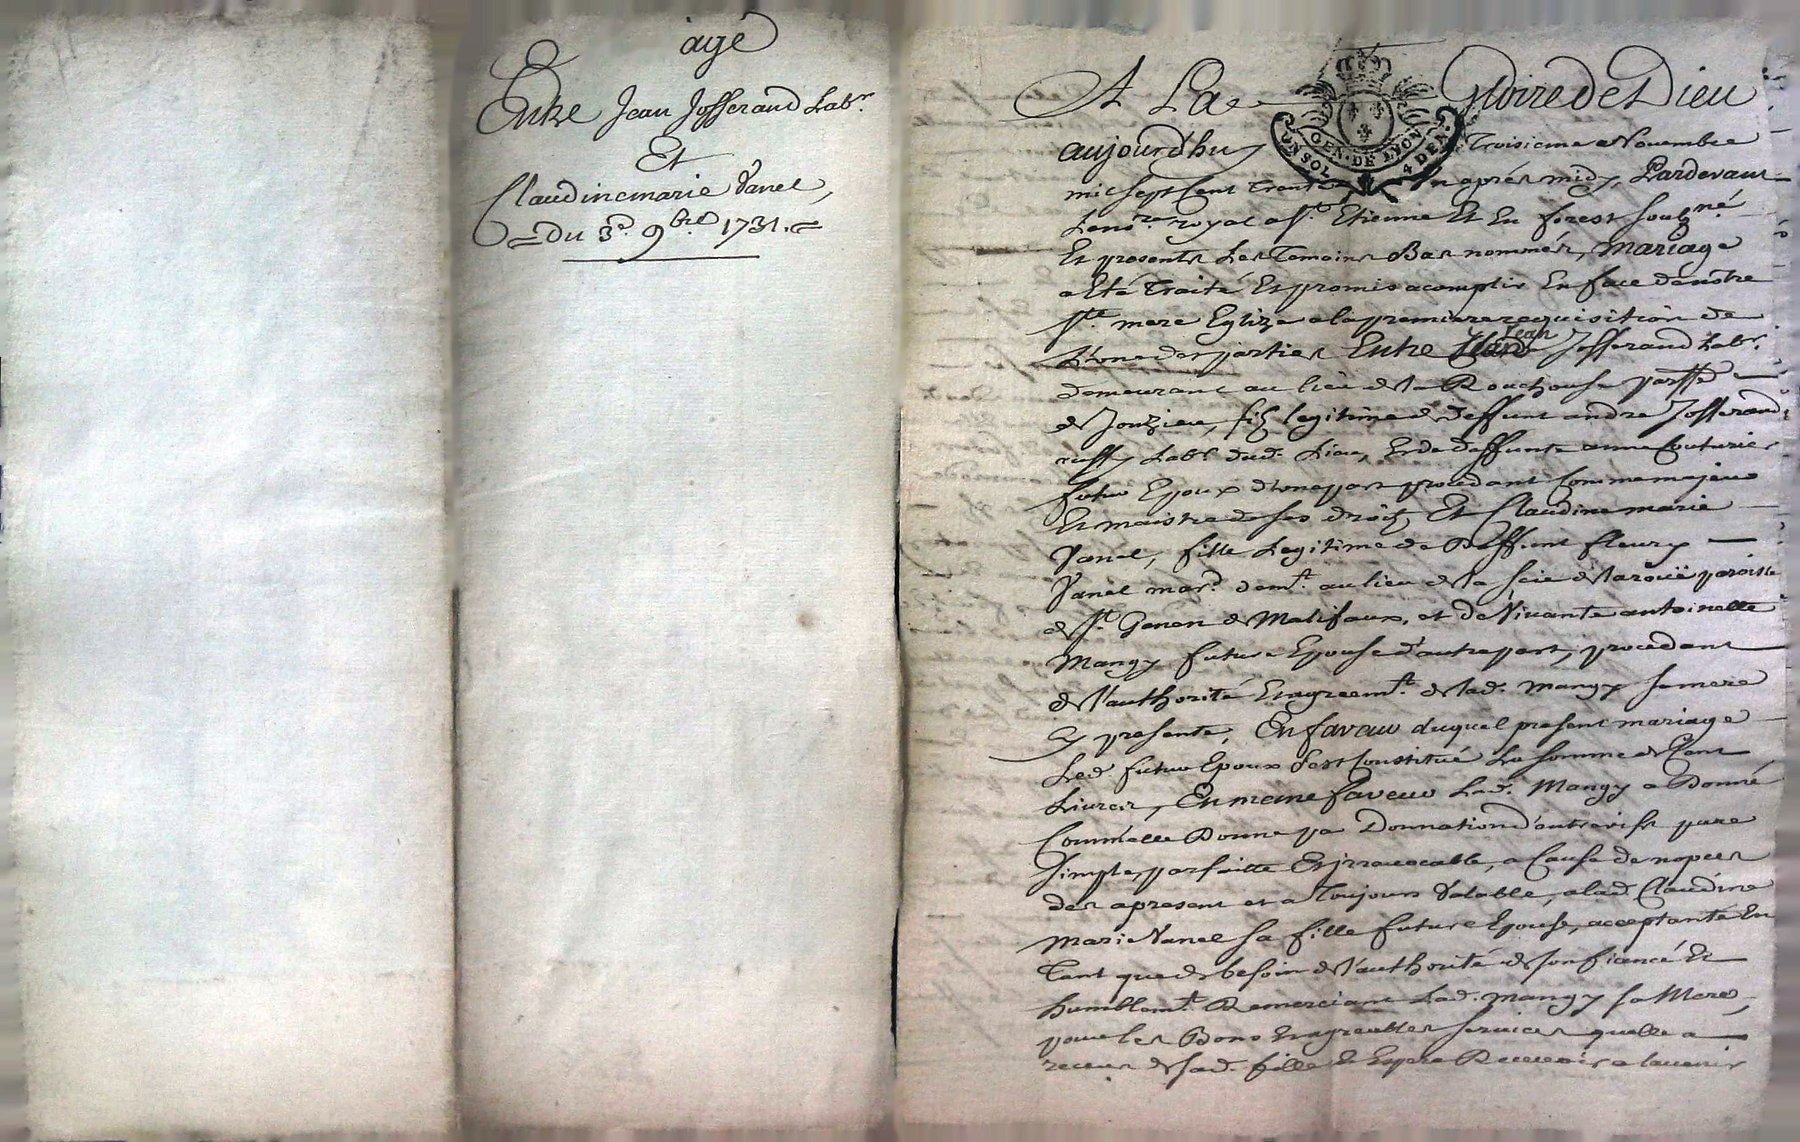 age
Entre Jean Josserand Labr.
Et
Claudine marie Vanel,
=Du 3e. 9bre 1731.=
A La Gloire de Dieu
GEN. DE LYON
UN SOL 4 DEN.
aujourdhuy Troisieme Novembre
mil sept Cent Trente un après midy, Pardevant
Le nore. royal a St. Etienne Et En forest soubzné.
Et presents Les Temoins Bas nommés, Mariage
a Eté Traité Et promis acomplir En face de nostre
Ste. mere Eglize a la premiere requisition de
L'une des parties Entre Jean Josserand Labr.
demeurant au lieu de la Rouchouse parsse
de Jonzieu, filz legitime de deffunt andré Josserand
Labr. dud. Lieu, Et de deffunte anne Couturier
futur Epoux d'une part procedant Comme majeur
Et maistre de ses droitz, Et Claudine marie
Vanel, fille Legitime de Deffunt fleury
Vanel mard. demt. au lieu de la Scie de la roüe paroisse
de St. Genen de Malifaux, et de Vivante antoinette
Mangy future Epouse d'autre part, procedant
de l'authorité Et agreemt. de lad. Mangy sa mere
y presente, En faveur duquel present mariage
Led. futur Epoux s'est Constitué La somme de Cent
Livres, En meme faveur Lad. Mangy a Donné
Comme elle Donne par Donnation d'entre vifs pure
Simple, parfaitte Et irrevocable, a Cause de nopces
des a present et a Toujours Valable, a lad. Claudine
Marie Vanel sa fille future Epouse, acceptante En
Tant que de besoin de l'authorité de son fiancé Et
humblemt. Remerciant Lad. Mangy sa Mere,
pour les Bons Et agreables services quelle a
receus de sad. fille Et Espere Recevoir a lavenir